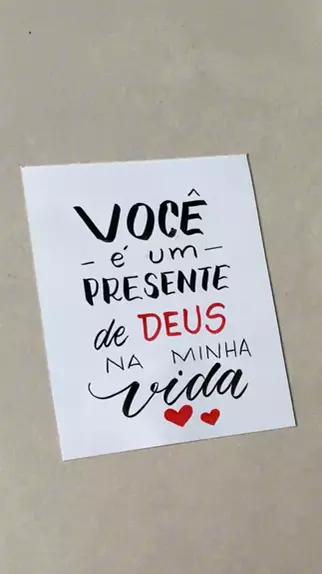 VOCÊ
- é um -
PRESENTE
de DEUS
NA MINHA
vida